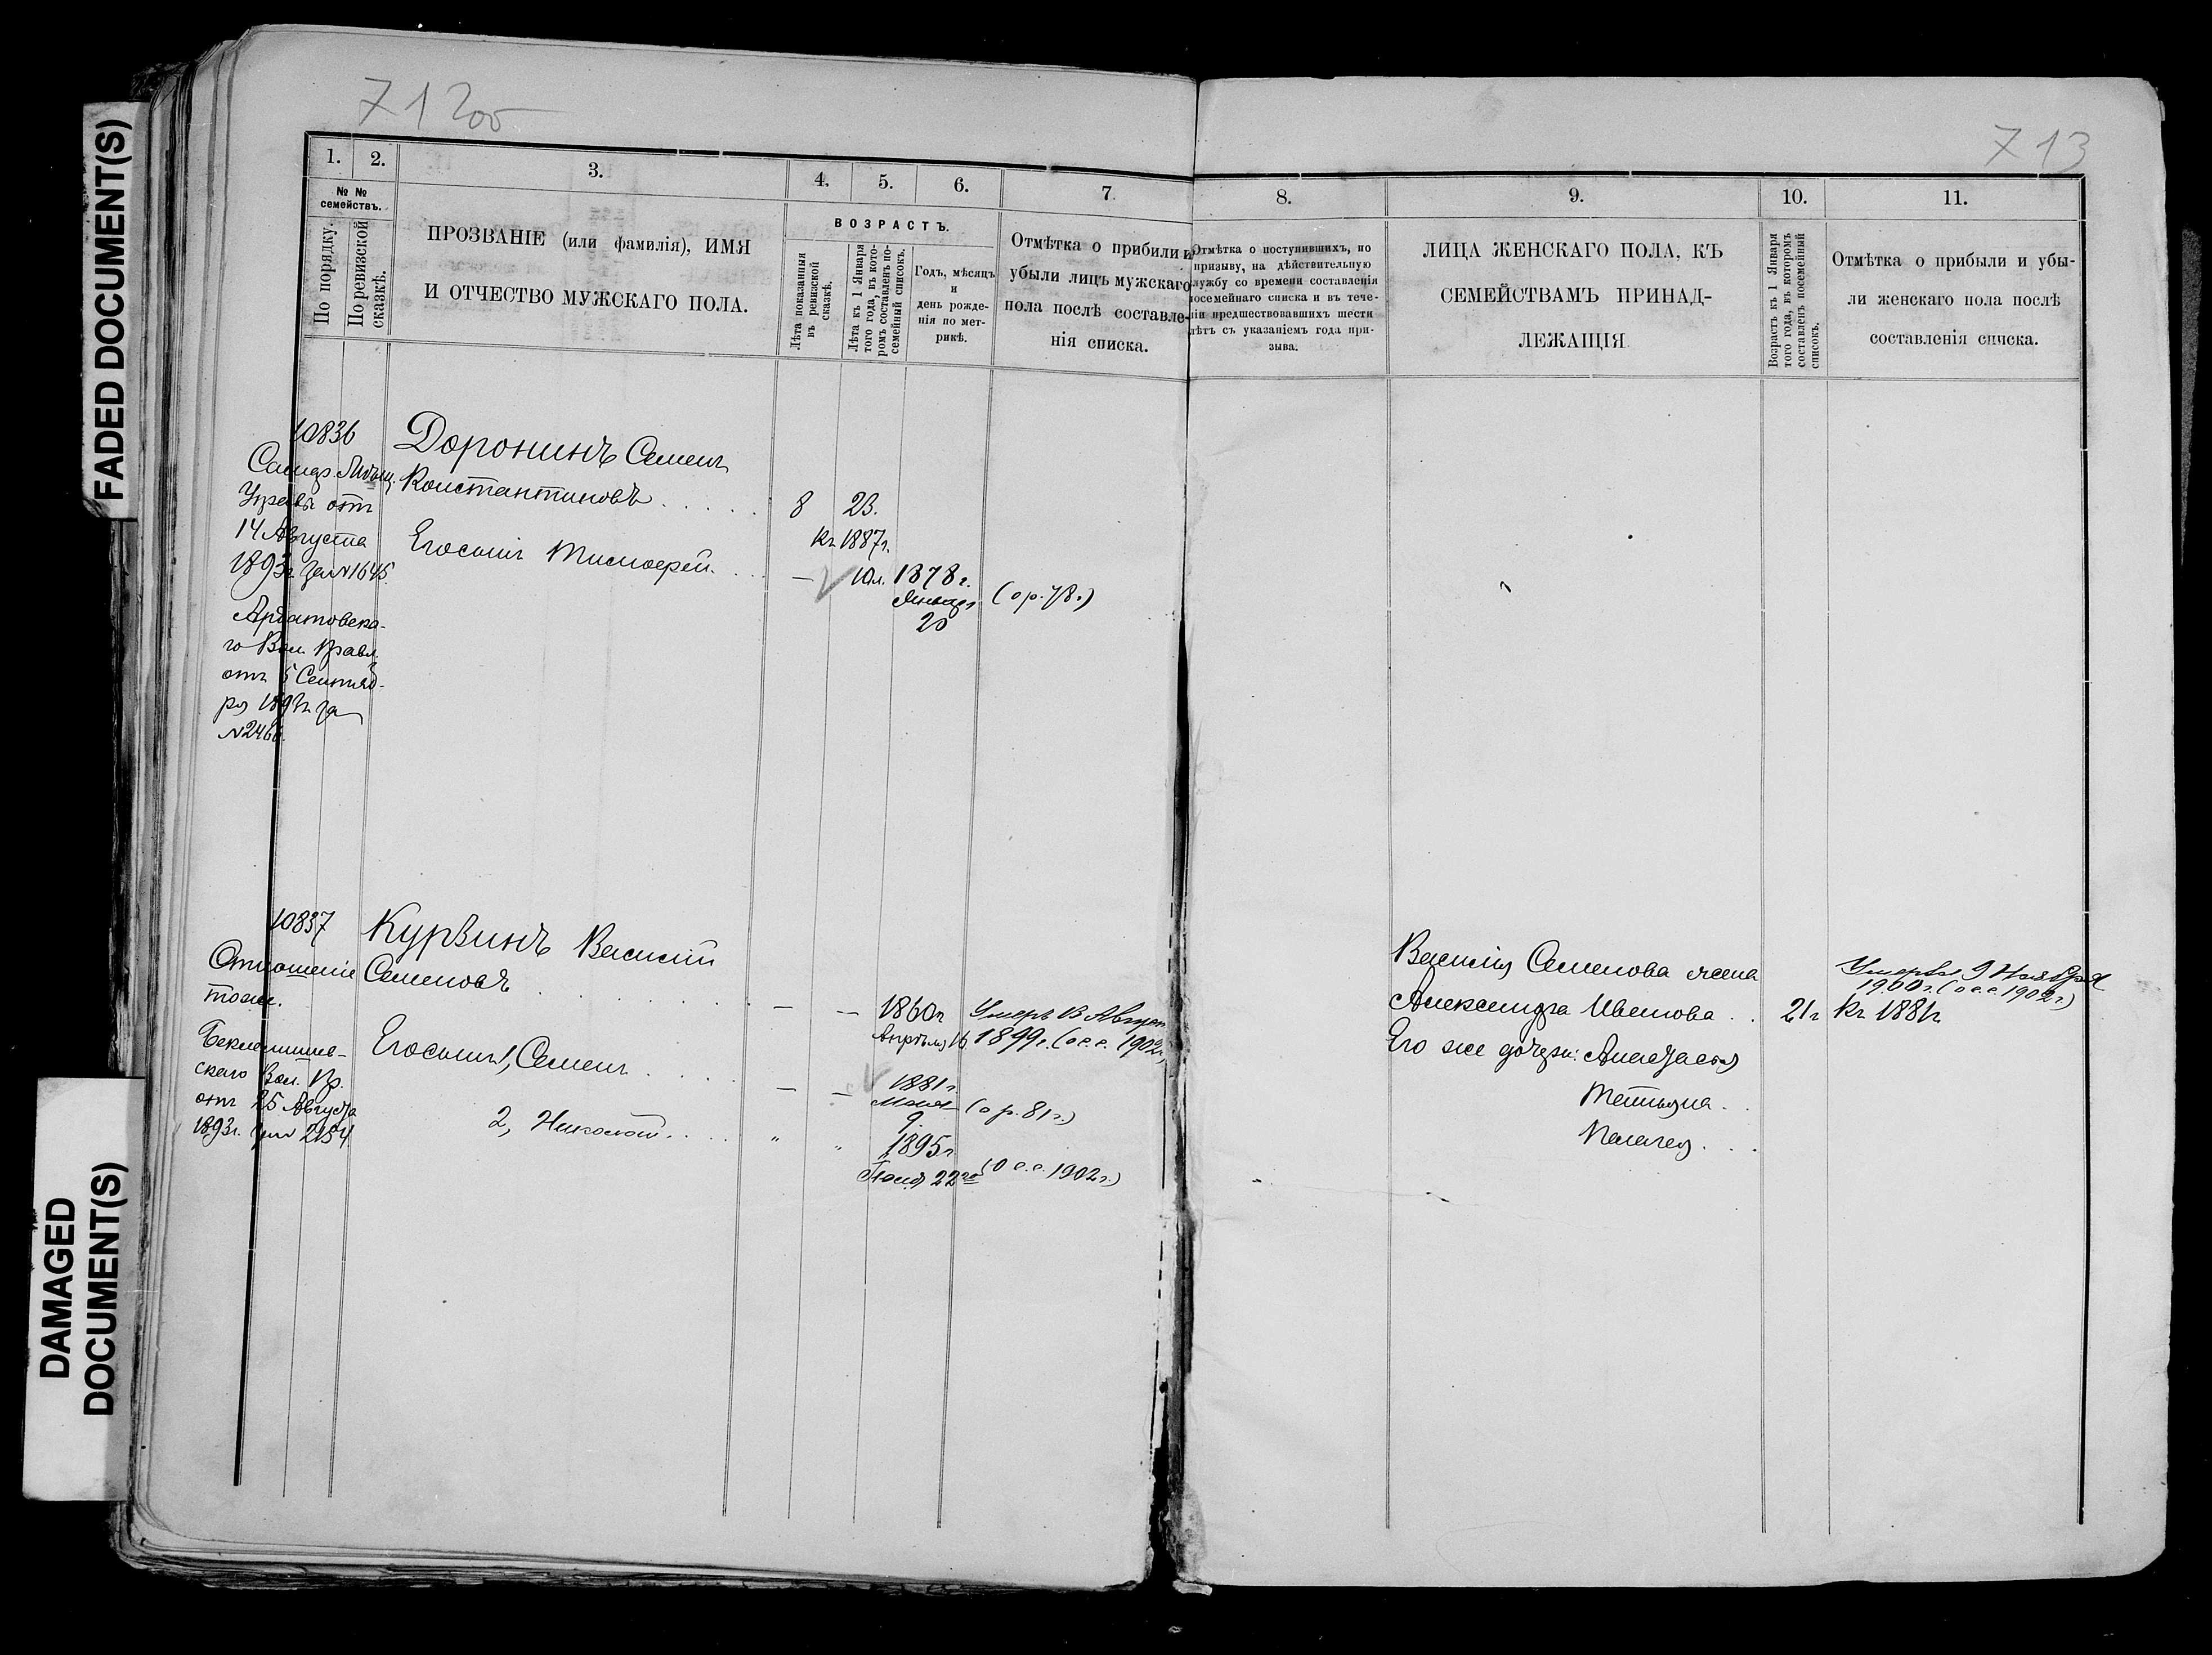 FADED DOCUMENT(S)
DAMAGED
DOCUMENT(S)
712об
713
1.
2.
3.
4.
5.
6.
7
8.
9.
10.
11.
№ №
семействъ.
По порядку.
По ревизской
сказкѣ.
ПРОЗВАНІЕ (или фамилія), ИМЯ
И ОТЧЕСТВО МУЖСКАГО ПОЛА.
ВОЗРАСТЪ.
Лѣта показанныя
въ ревизской
сказкѣ.
Лѣта къ 1 Января
того года, въ кото-
ромъ составленъ по-
семейный списокъ.
Годъ, мѣсяцъ
и
день рожде-
нія по мет-
рикѣ.
Отмѣтка о прибыли и
убыли лицъ мужскаго
пола послѣ составле-
нія списка.
Отмѣтка о поступившихъ, по
призыву, на дѣйствительную
службу со времени составленія
посемейнаго списка и въ тече-
ніи предшествовавшихъ шести
лѣтъ съ указаніемъ года при-
зыва.
ЛИЦА ЖЕНСКАГО ПОЛА, КЪ
СЕМЕЙСТВАМЪ ПРИНАД-
ЛЕЖАЩІЯ
Возрастъ къ 1 Января
того года, въ которомъ
составленъ посемейный
списокъ.
Отмѣтка о прибыли и убы-
ли женскаго пола послѣ
составленія списка.
10836
Доронинъ Семенъ
Константиновъ
8 23.
къ 1887г.
Управы отъ
14 Августа
1893г. за № 1645
Ардатовска-
го Вол. Правл.
отъ 5 Сентяб-
ря 1893г. за
№ 2466.
Его сынъ Тимофей
— 10л. 1878г.
Января
20
(о р. 78г.)
10837
Курвинъ Василій
Семеновъ
Отношеніе
тоже.
— — 1860г.
Апрѣля 16
Умеръ В Август
1899г. (о с.с. 1902г.)
скаго Вол. Пр.
отъ 25 Августа
1893г. за № 2154
Его сынъ 1, Семенъ
— — 1881г.
Мая
9.
(о р. 81г.)
2, Николай
" " 1895г.
22го (О с.с. 1902г.)
Василія Семенова жена
Александра Иванова
21г.
Къ 1881г.
Умерла 9 Ноября
1900г. (о с.с. 1902г.)
Его же дочери: Анастасія
Татьяна
Пелагея